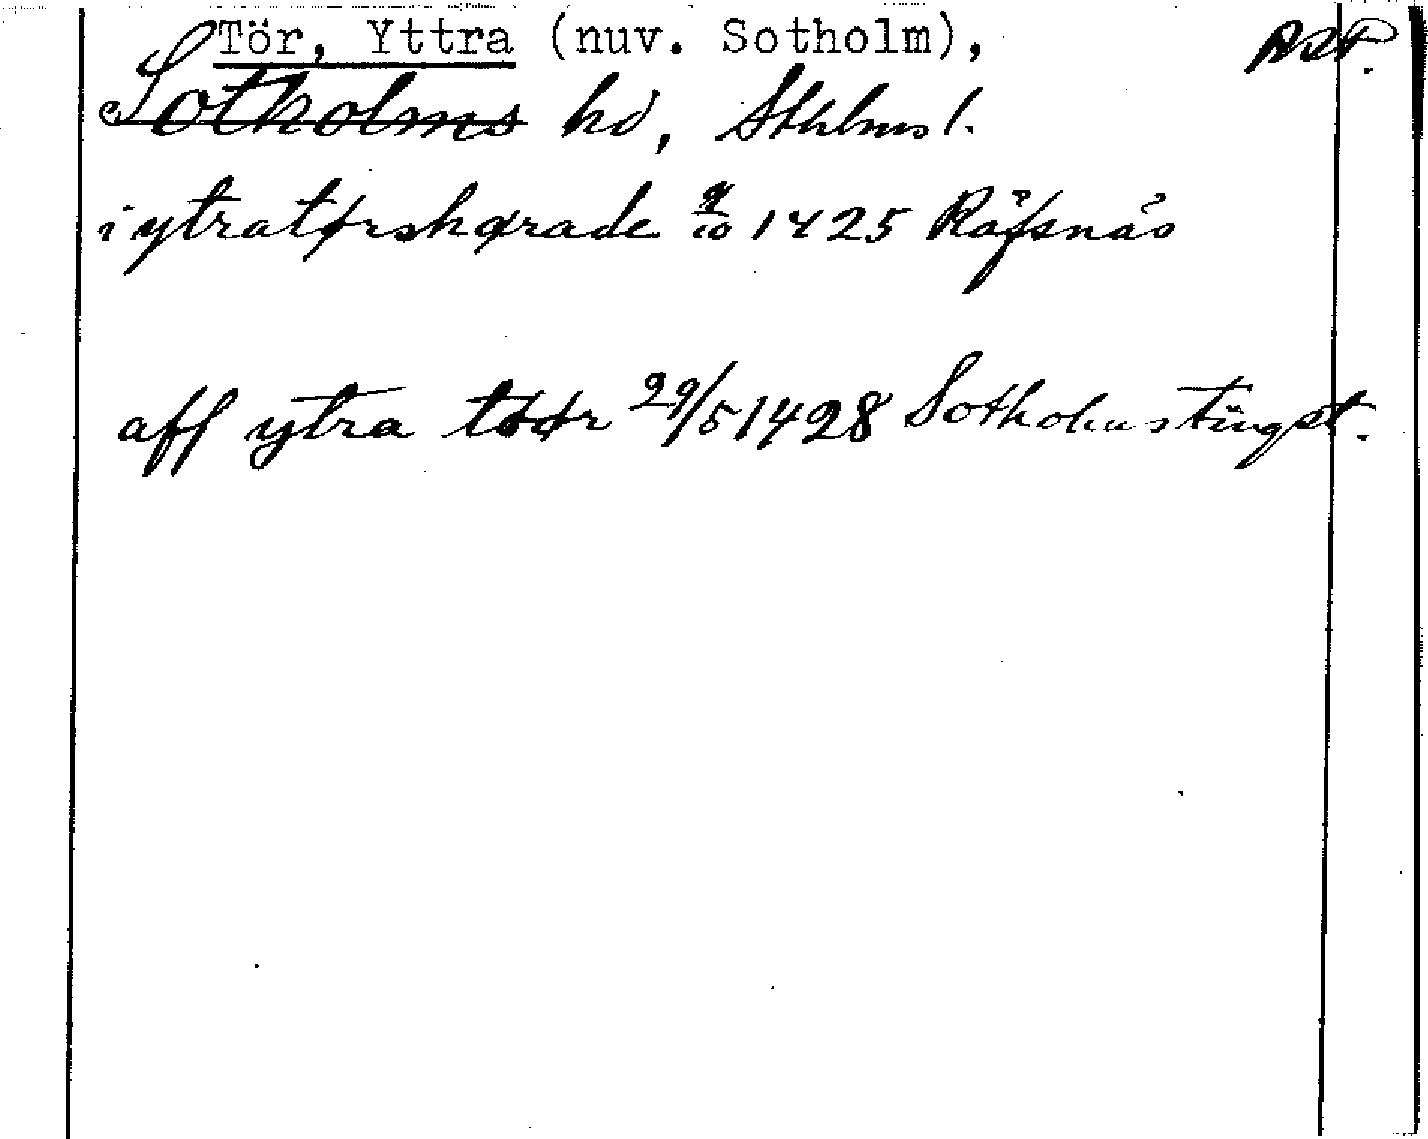 Tör, Yttra (nuv. Sotholm), ASP.
Sotholms hd, Sthlms l.
i ytratørshørade 9/10 1425 Räfsnäs
aff ytra tøør 29/5 1428 Sotholms tingst.